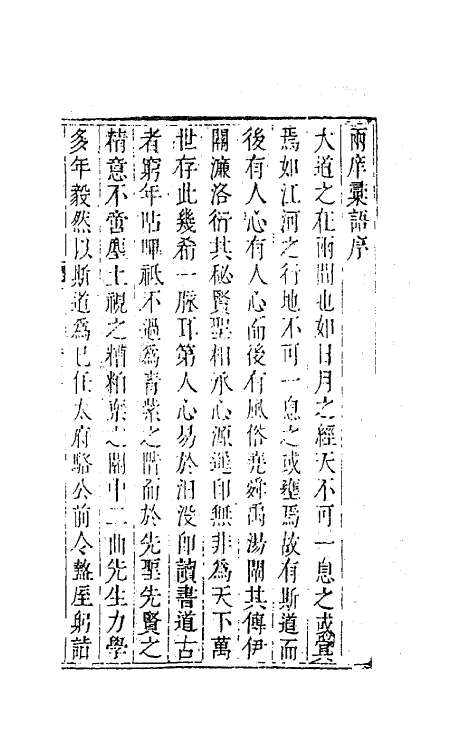 兩庠彙語序
大道之在兩間也如日月之經天不可一息之或冥
焉如江河之行地不可一息之或壅焉故有斯道而
後有人心有人心而後有風俗堯舜禹湯開其傳伊
關濂洛衍其秘賢聖相承心源遞印無非為天下萬
世存此幾希一脉耳第人心易於汨没即讀書道古
者窮年呫嗶祇不過為青紫之階而於先聖先賢之
精意不啻塵土視之糟粕棄之關中二曲先生力學
多年毅然以斯道為已任太府駱公前令盩厔躬詣